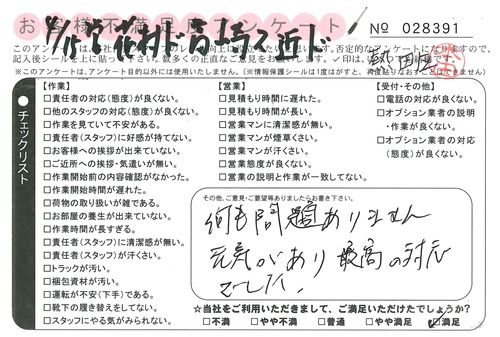 お客様不満足度アンケート
№ 028391
このアンケートは、
否定的なアンケートになりますので、
記入後シールを上に貼って下さい。数多くの正直なご意見をお願いします。✓印は、
※このアンケートは、アンケート目的以外には使用いたしません。(※情報保護シールは1度はがすと、再度貼りなおすことができません)
チェックリスト
【作業】
□責任者の対応(態度)が良くない。
□他のスタッフの対応(態度)が良くない。
□作業を見ていて不安がある。
□責任者(スタッフ)に好感が持てない。
□お客様への挨拶が出来ていない。
□ご近所への挨拶・気遣いが無い。
□作業開始前の内容確認がなかった。
□作業開始時間が遅れた。
□荷物の取り扱いが雑である。
□お部屋の養生が出来ていない。
□作業時間が長すぎる。
□責任者(スタッフ)に清潔感が無い。
□責任者(スタッフ)が汗くさい。
□トラックが汚い。
□梱包資材が汚い。
□運転が不安(下手)である。
□靴下の履き替えをしてない。
□スタッフにやる気がみられない。
【営業】
□見積もりに遅れた。
□見積もり時間が長い。
□営業マンに清潔感が無い。
□営業マンが煙草くさい。
□営業マンが汗くさい。
□営業態度が良くない。
□営業の説明と作業が一致してない。
【受付・その他】
□電話の対応が良くない。
□オプション業者の説明
・作業が良くない。
□オプション業者の対応
(態度)が良くない。
その他、ご意見・ご要望等ありましたらお書き下さい。
何も問題ありません
元気があり最高の対応
でした。
☆当社をご利用いただきまして、ご満足いただけたでしょうか?
□不満 □やや不満 □普通 □やや満足 ☑満足